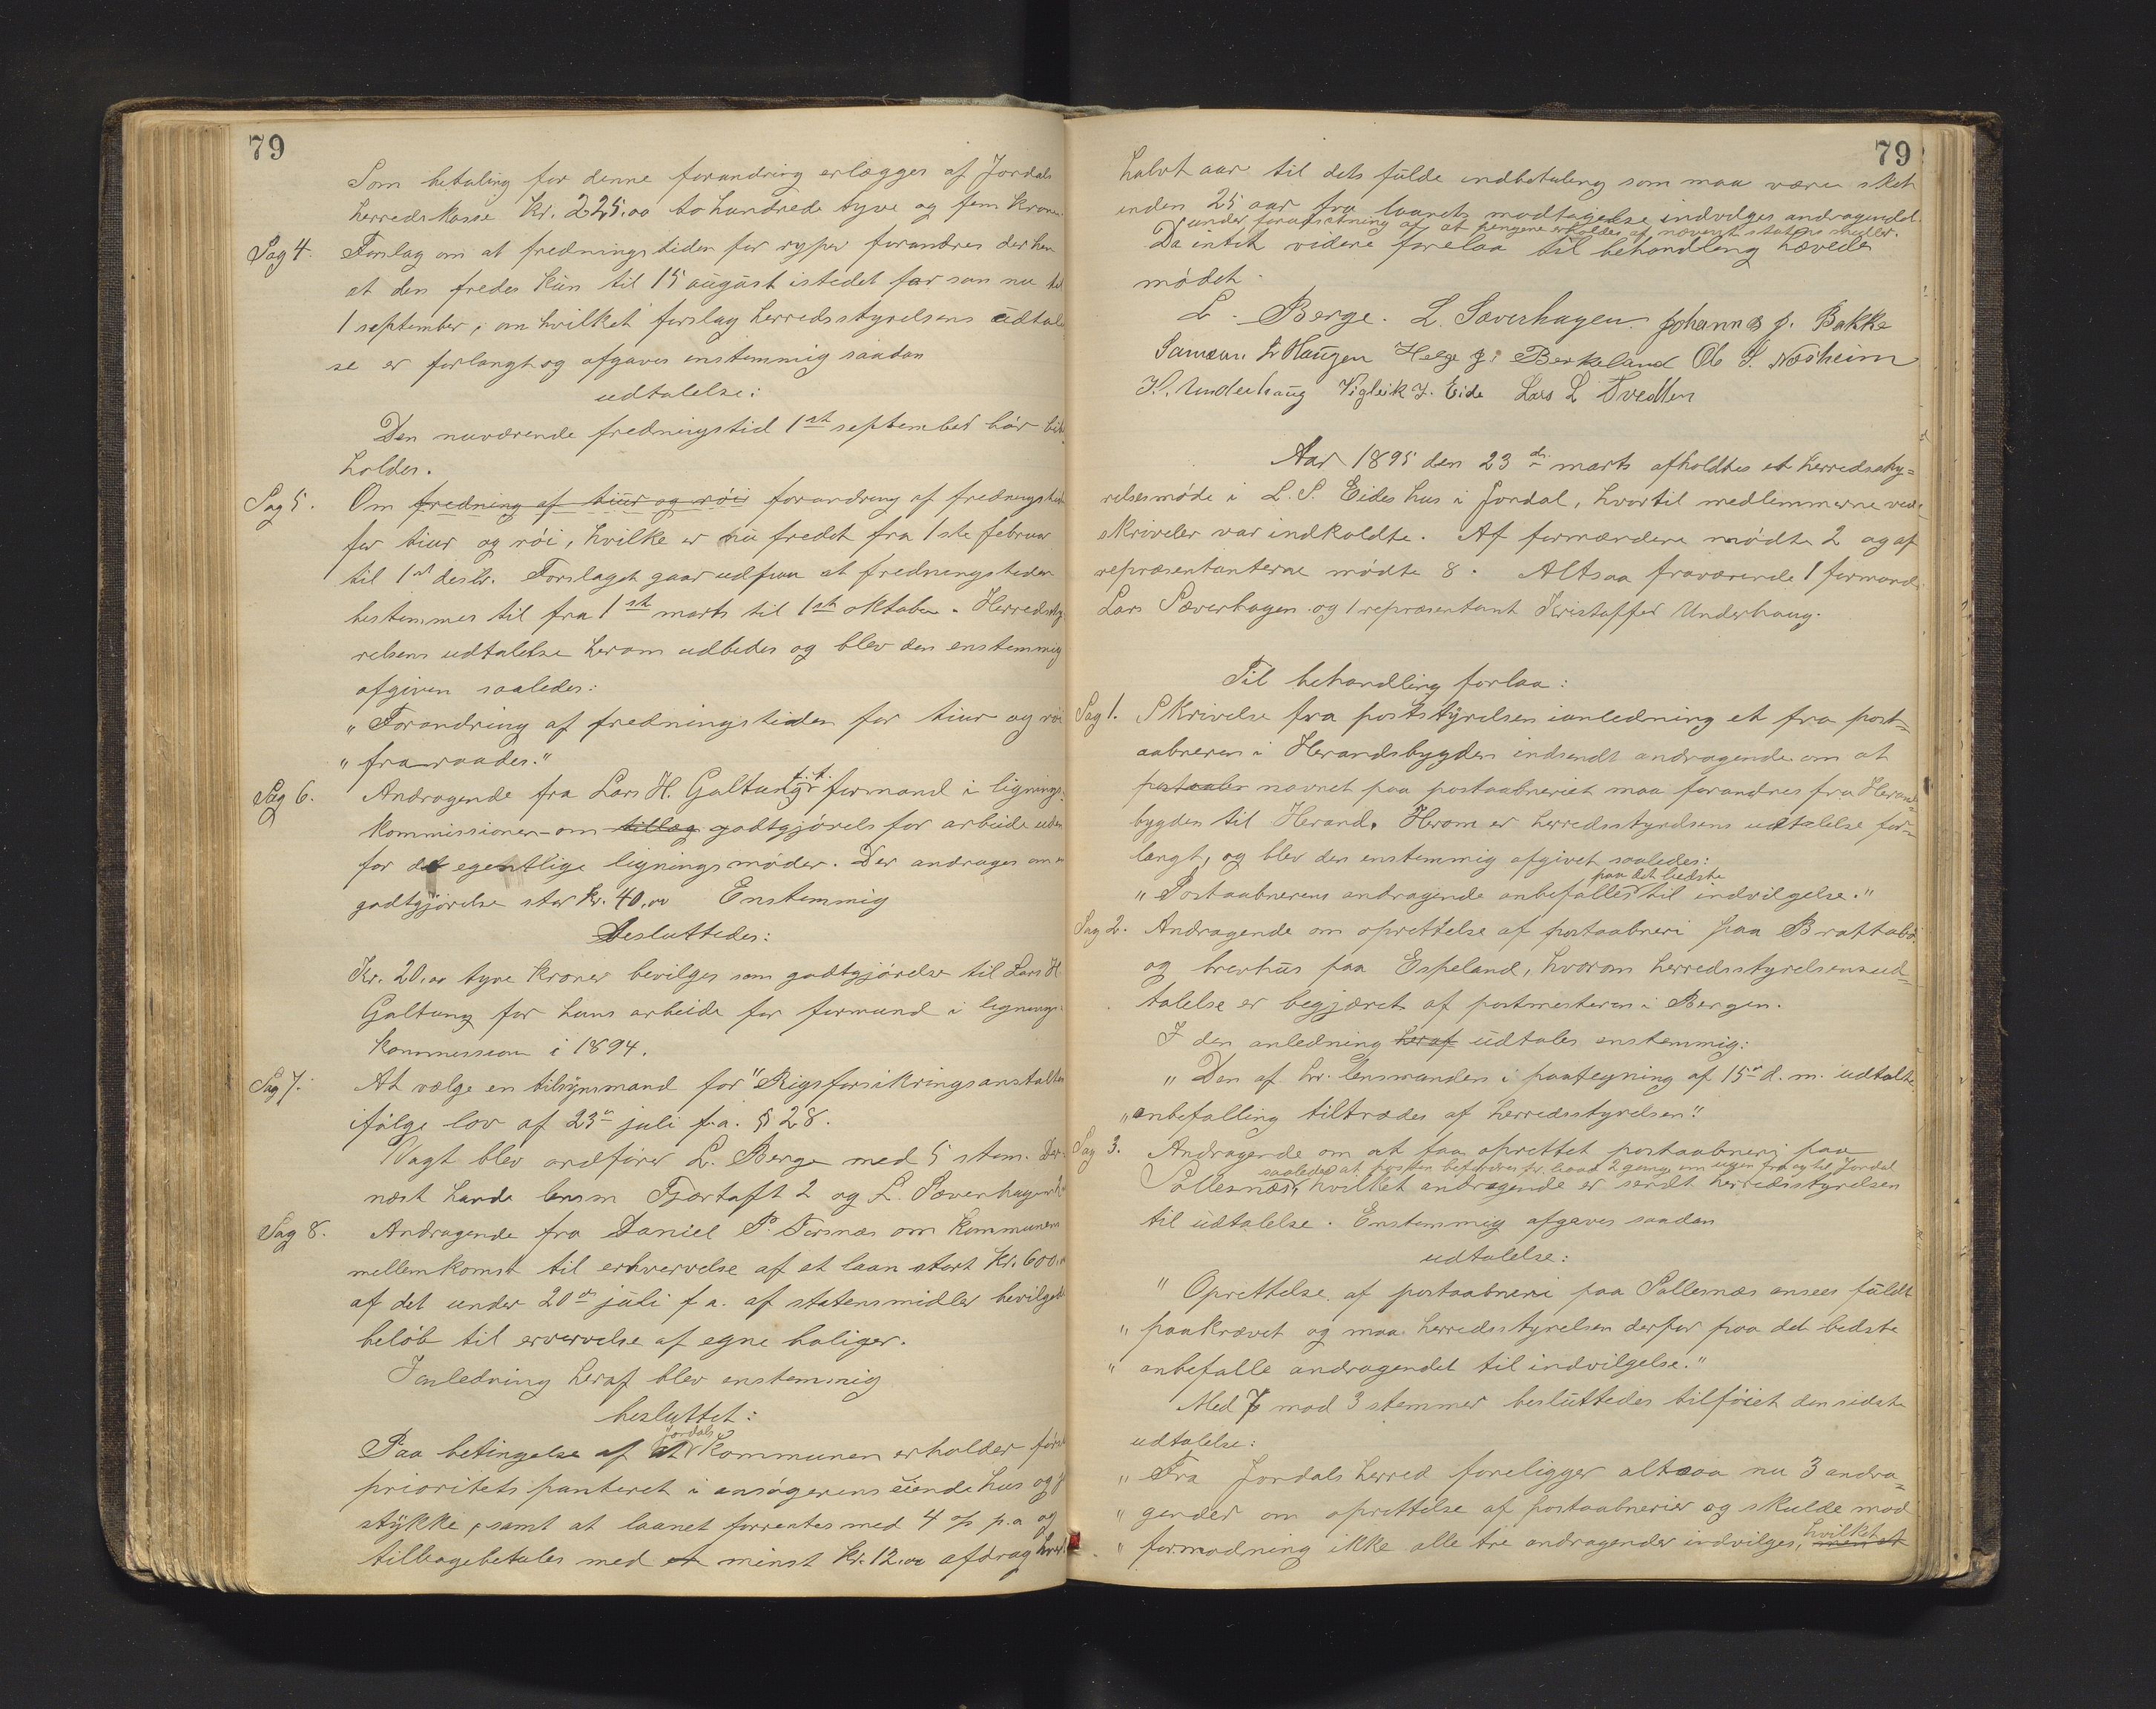 79
Som betaling for denne forandring erlægges af Jondals
herredskasse kr. 225.00 to hundrede tyve og fem kroner
Sag 4. Forslag om at fredningstiden for ryper forandres derhen
at den fredes kun til 15 august istedet for som nu til
1 september, om hvilket forslag herredsstyrelsens udtalel
se er forlangt og afgaves enstemmig saadan
udtalelse:
Den nuværende fredningstid 1ste september bør bibe
holdes.
Sag 5. Om fredning af tiur og röi forandring af fredningstiden
for tiur og röi, hvilke er nu fredet fra 1ste februar
til 1st desbr. Forslaget gaar ud paa at fredningstiden
bestemmes til fra 1ste marts til 1ste oktober. Herredssty
relsens udtalelse herom udbedes og blev den enstemmig
afgiven saaledes:
"Forandring af fredningstiden for tiur og röi
"fraraades."
Sag 6. Andragende fra Lars H. Galtung f.t. formand i lignings-
kommissionen om tillæg godtgjörelse for arbeide uden
for det egentlige ligningsmøder. Der andrages om en
godtgjørelse stor kr. 40.00 Enstemmig
Besluttedes:
Kr. 20.00 tyve kroner bevilges som godtgjörelse til Lars H.
Galtung for hans arbeide for formand i lignings-
kommission i 1894.
Sag 7. At vælge en tilsynsmand for "Rigsforsikringsanstalten
ifölge lov af 23de juli f.a. § 28.
Valgt blev ordförer L. Berge med 5 stem. Der-
næst havde lensm Tjærtoft 2 og L. Sæverhagen 2
Sag 8. Andragende fra Daniel P. Torsnæs om kommunens
mellemkomst til erhvervelse af et laan stort kr. 600.00
af det under 20de juli f a. af statens midler bevilgede
belöb til ervervelse af egne boliger.
Ianledning heraf blev enstemmig
besluttet:
Paa betingelse af at Jondals kommunen erholder förste
prioritets panteret i ansögerens eiende hus og j
stykke, samt at laanet forrentes med 4 % p.a og
tilbagebetales med et minst kr. 12.00 afdrag hvert
79
halvt aar til dets fulde indbetaling som maa være sket
inden 25 aar fra laanets modtagelse indvilges andragendet
under forudsætning af at pengene erholdes af nævnte statens midler.
Da intet videre forelaa til behandling hævedes
mödet.
L. Berge. L. Sæverhagen. Johannes J. Bakke
Samson Haugen Helge J. Berkeland Ole S. Næsheim
K. Underhaug Vigleik J. Eide Lars L Tvedten
Aar 1895 den 23de marts afholdtes et herredssty=
relsesmöde i L. S. Eides hus i Jondal, hvortil medlemmerne ved
skrivelse var indkaldte. Af formændene mödte 2 og af
repræsentanterne mödte 8. Altsaa fraværende 1 formand
Lars Sæverhagen og 1 repræsentant Kristoffer Underhaug.
Til behandling forlaa:
Sag 1. Skrivelse fra poststyrelsen ianledning et fra post=
aabneren i Herandsbygden indsendt andragende om at
postaaber navnet paa postaabneriet maa forandres fra Herands=
bygden til Herand. Herom er herredsstyrelsens udtalelse for=
langt, og blev den enstemmig afgivet saaledes:
paa det bedste
"Postaabnerens andragende anbefalles til indvilgelse."
Sag 2. Andragende om oprettelse af postaabneri paa Brattabö
og brevhus paa Espeland, hvorom herredsstyrelsens ud=
talelse er begjæret af postmesteren i Bergen.
I den anledning heraf udtales enstemmig:
"Den af hr. lensmanden i paategning af 15de d. m. udtalte
"anbefalling tiltrædes af herredsstyrelsen."
Sag 3. Andragende om at faa oprettet postaabneri paa
saaledes at posten befordres pr. baad 2 gange om ugen fra og til Jondal
Sollesnæs, hvilket andragende er sendt herredsstyrelsen
til udtalelse. Enstemmig afgaves saadan
udtalelse:
"Oprettelse af postaabneri paa Sollesnæs ansees fuldt
"paakrævet og maa herredsstyrelsen derfor paa det bedste
"anbefalle andragendet til indvilgelse."
Med 7 mod 3 stemmer besluttedes tilföiet den sidste
udtalelse:
"Fra Jondals herred foreligger altsaa nu 3 andra=
"gender om oprettelse af postaabnerier og skulde mod
"formodning ikke alle tre andragender indvilges, hvilket men at